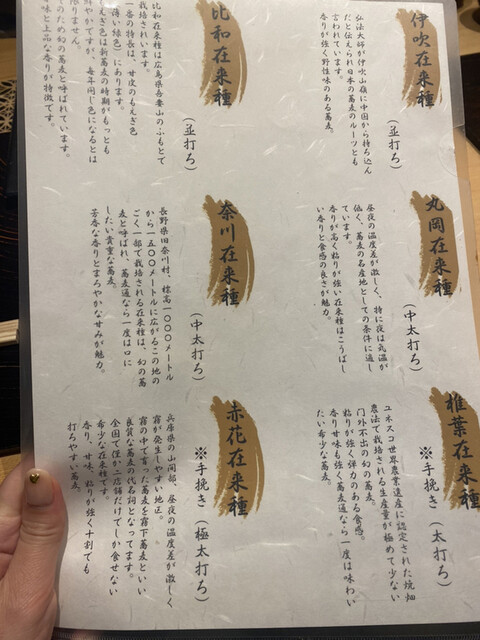 伊吹在来種
（並打ち）
弘法大師が伊吹山嶺に中国から持ち込ん
だと伝えられ日本の蕎麦のルーツとも
言われています。
香りが強く野性味のある蕎麦。
丸岡在来種
（中太打ち）
昼夜の温度差が激しく、特に夜は気温が
低く、蕎麦の名産地としての条件に適し
ています。
香りが高く粘りが強い在来種はこうばし
い香りと食感の良さが魅力。
椎葉在来種
※手挽き（太打ち）
ユネスコ世界農業遺産に認定された焼畑
農法で栽培される生産量が極めて少ない
門外不出の幻の蕎麦。
粘りが強く弾力のある食感。
香り甘味も強く蕎麦通なら一度は味わい
たい希少な蕎麦。
比和在来種
（並打ち）
比和在来種は広島県吾妻山のふもとで
栽培されています。
一番の特長は、甘皮のもえぎ色
（薄い緑色）にあります。
え色は新蕎麦の時期がもっとも
鮮やかですが、毎年同じ色になるとは
限りません。
のため幻の蕎麦と呼ばれています。
味と上品な香りが特徴です。
奈川在来種
（中太打ち）
長野県旧奈川村、標高一〇〇〇メートル
から一五〇〇メートルに広がるこの地の
ごく一部で栽培される在来種は、幻の蕎
麦と呼ばれ、蕎麦通なら一度は口に
したい貴重な蕎麦。
芳香な香りとまろやかな甘みが魅力。
赤花在来種
※手挽き（極太打ち）
兵庫県の山間部、昼夜の温度差が激しく
霧が発生しやすい地区。
霧の中で育った蕎麦を霧下蕎麦といい
良質な蕎麦の代名詞となってます。
全国で僅か二店舗だけでしか食せない
希少な在来種です。
香り、甘味、粘りが強く十割でも
打ちやすい蕎麦。